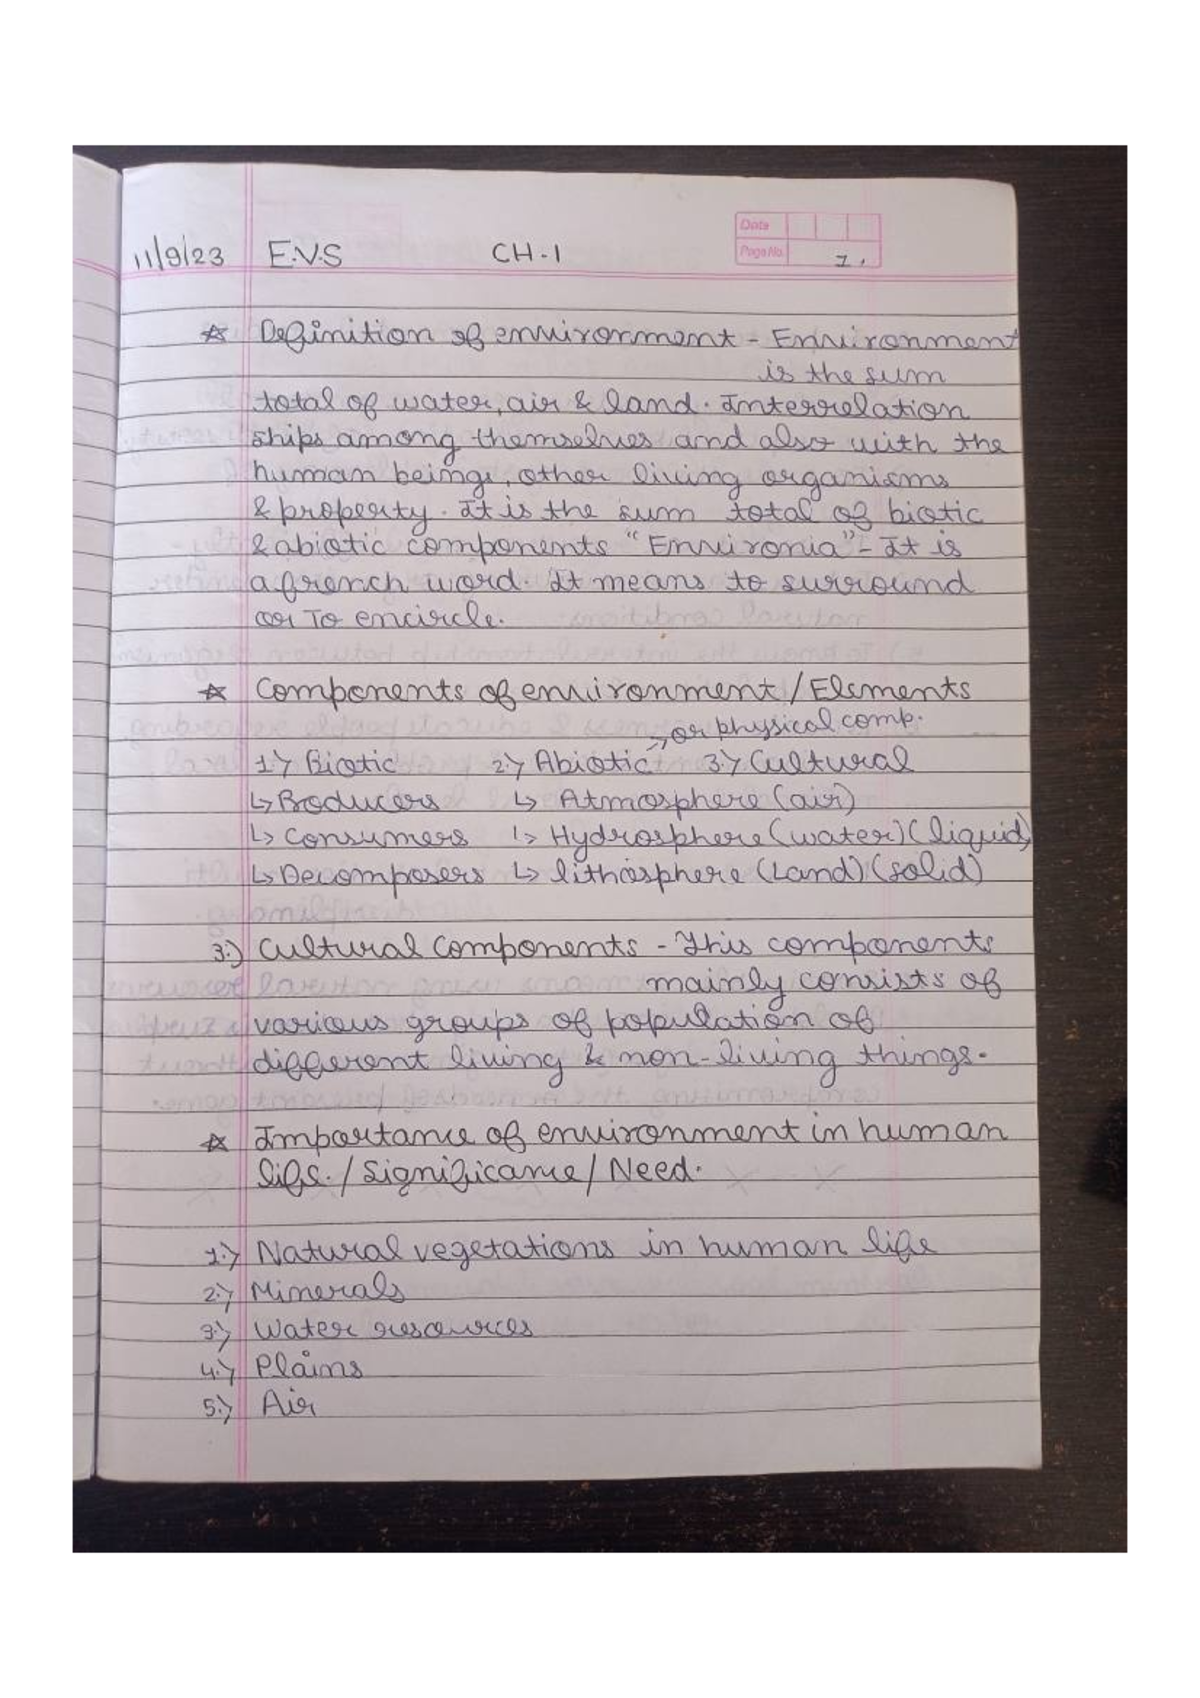 Date
Page No. 1.
11/9/23 E.V.S CH-1
☆ Definition of environment - Environment
is the sum
total of water, air & land. Interrelation
ships among themselves and also with the
human beings, other living organisms
& property. It is the sum total of biotic
& abiotic components "Environia" - It is
a french word. It means to surround
or To encircle.
☆ Components of environment / Elements
→ or physical comp.
1.) Biotic 2.) Abiotic 3.) Cultural
↳ Producers ↳ Atmosphere (air)
↳ Consumers ↳ Hydrosphere (water) (liquid)
↳ Decomposers ↳ lithosphere (Land) (solid)
3.) Cultural Components - This components
mainly consists of
various groups of population of
different living & non-living things.
☆ Importance of environment in human
life. / Significance / Need.
1.) Natural vegetations in human life
2.) Minerals
3.) Water resources
4.) Plains
5.) Air